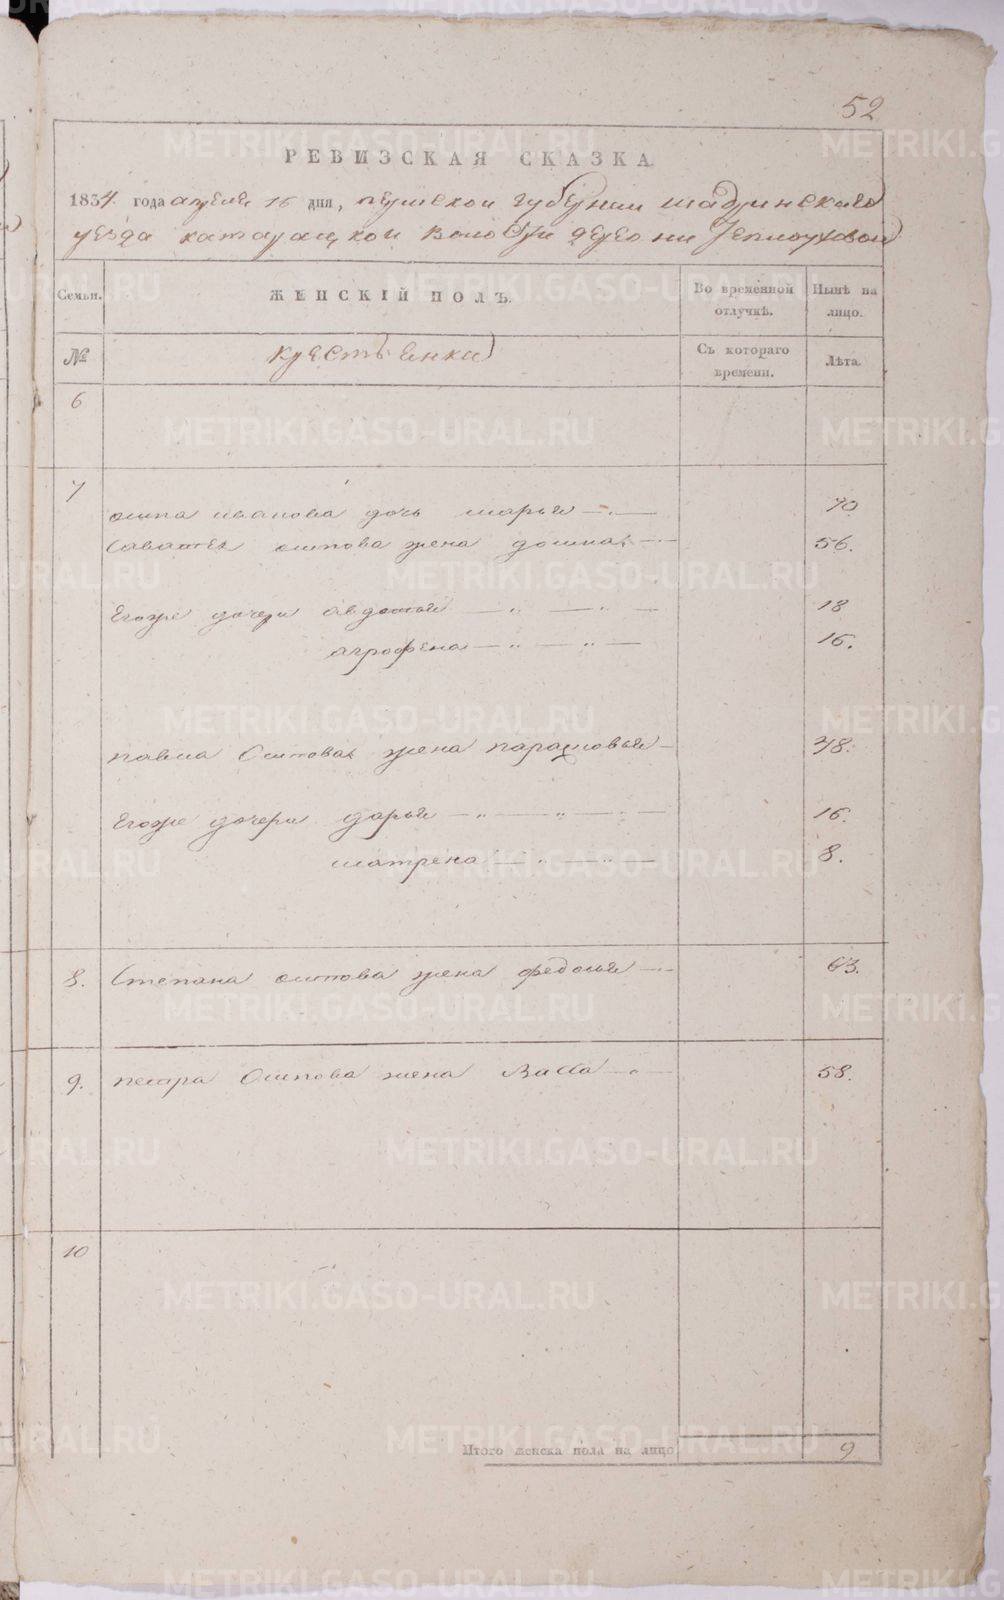 52
РЕВИЗСКАЯ СКАЗКА.
1834. года апреля 16 дня, пермской губернии шадринскаго
уезда катарацкой волости деревни Теплоуховой
Семьи. ЖЕНСКІЙ ПОЛЪ. Во временной отлучкѣ. Нынѣ на лицо.
№ крестьенки Съ котораго времени. Лѣта.
6
7
осипа иванова дочь марья 70
Саватея осипова жена домна 56.
Егоже дочери авдотья 18
агрофена 16.
павла Осипова жена парасковья 48.
Егоже дочери дарья 16.
матрена 8.
8. Степана осипова жена федосья 63.
9. петра Осипова жена Васса 58.
10
Итого женска пола на лицо 9
METRIKI.GASO-URAL.RU